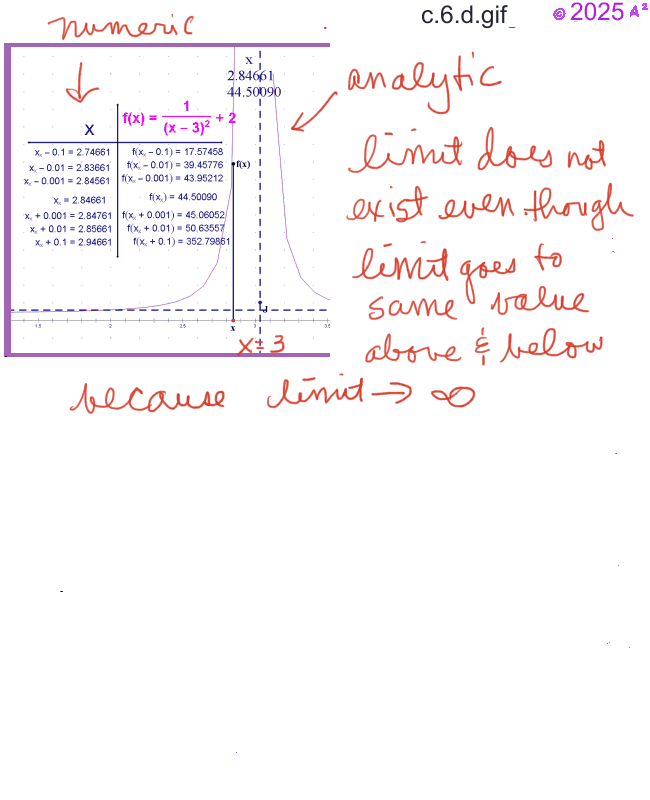 numeric
c.6.d.gif_
© 2025 A²
x
2.84661
44.50090
analytic
x
f(x) = 1 / (x – 3)² + 2
x꜀ – 0.1 = 2.74661 f(x꜀ – 0.1) = 17.57458
x꜀ – 0.01 = 2.83661 f(x꜀ – 0.01) = 39.45776
x꜀ – 0.001 = 2.84561 f(x꜀ – 0.001) = 43.95212
x꜀ = 2.84661 f(x꜀) = 44.50090
x꜀ + 0.001 = 2.84761 f(x꜀ + 0.001) = 45.06052
x꜀ + 0.01 = 2.85661 f(x꜀ + 0.01) = 50.63557
x꜀ + 0.1 = 2.94661 f(x꜀ + 0.1) = 352.79861
f(x)
1.5 2 2.5 3 3.5
x
x = 3
limit does not
exist even though
limit goes to
same value
above & below
because limit → ∞